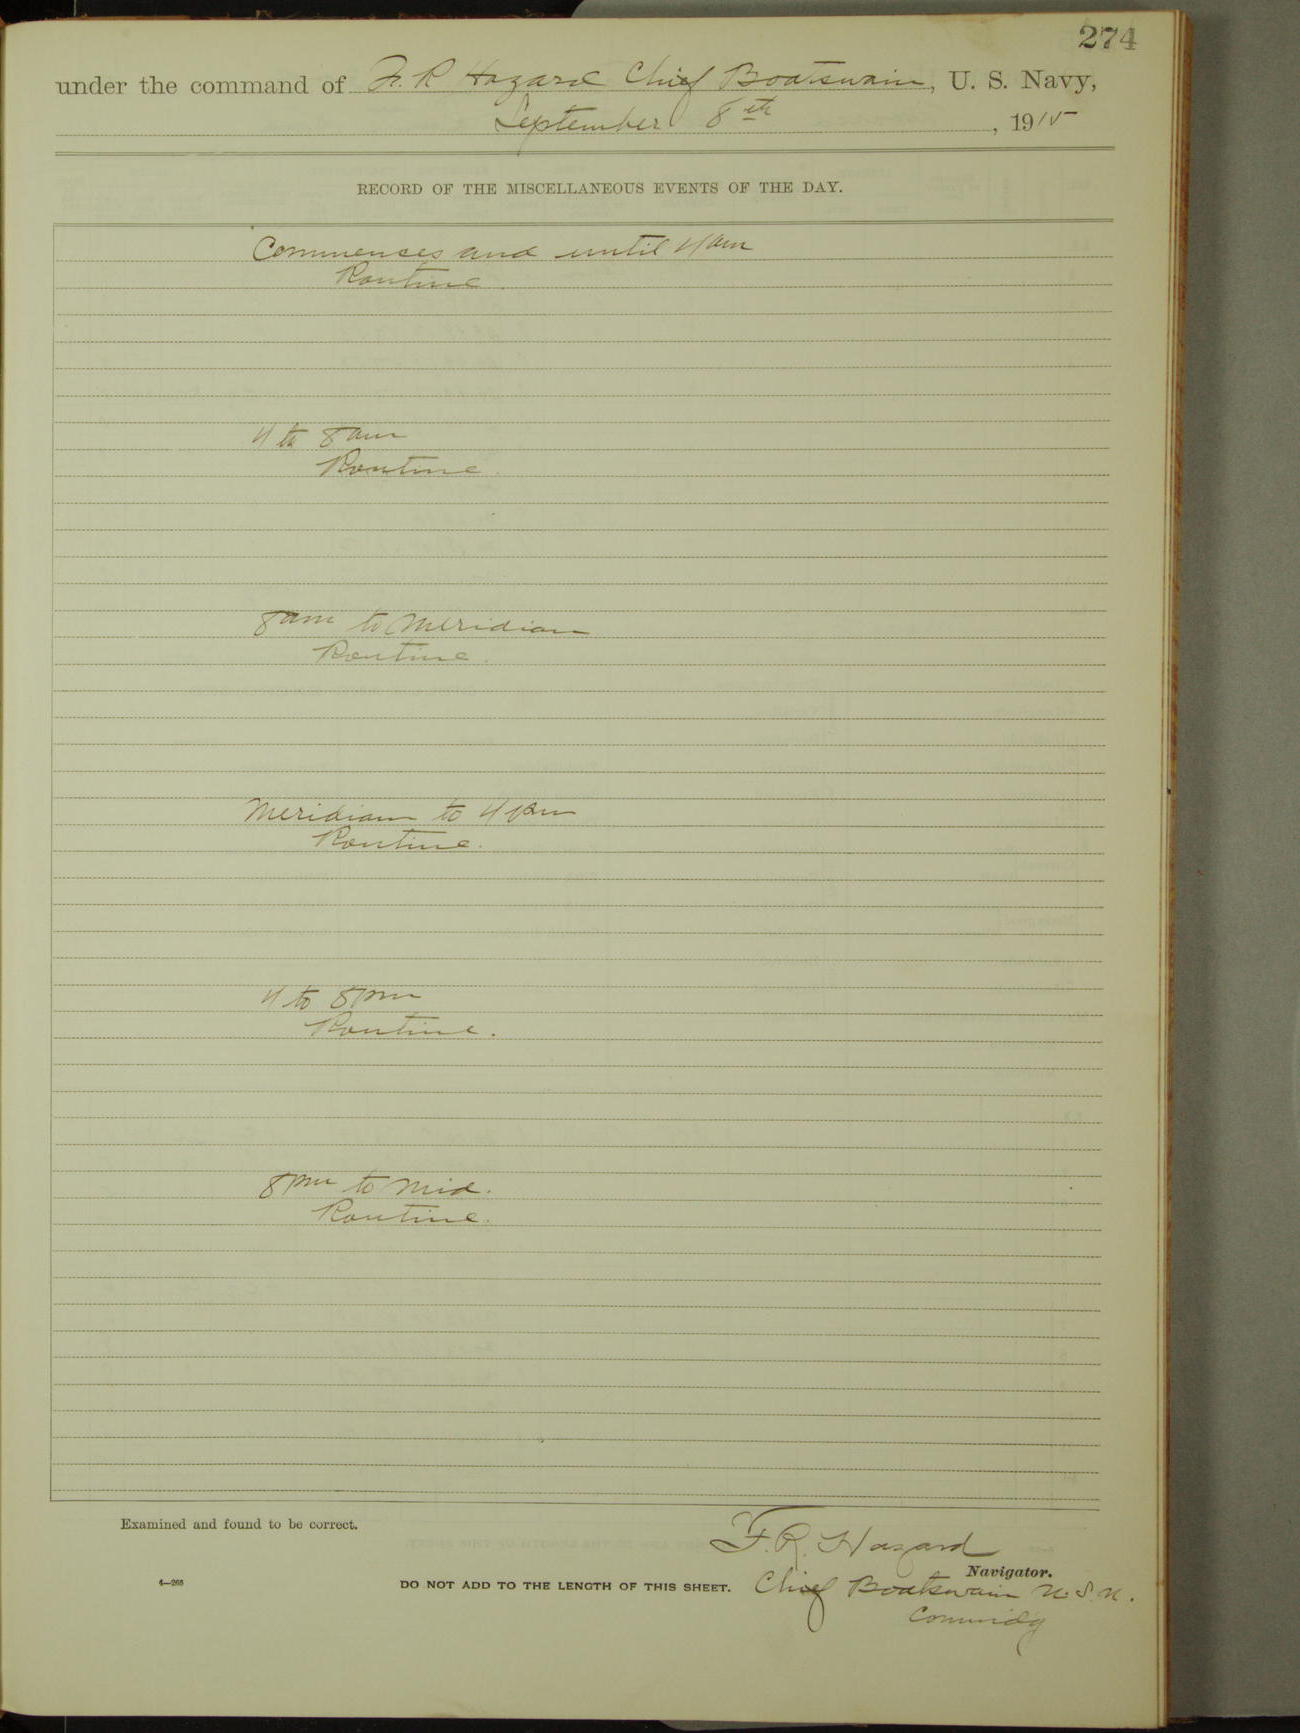 274
under the command of F. R Hazard Chief Boatswain, U. S. Navy,
September 8th, 1915
RECORD OF THE MISCELLANEOUS EVENTS OF THE DAY.
Commences and until 4 am
Routine.
4 to 8 am
Routine.
8 am to Meridian
Routine.
Meridian to 4 pm
Routine.
4 to 8 pm
Routine.
8 pm to Mid.
Routine.
Examined and found to be correct.
F. R. Hazard
Navigator.
6—266 DO NOT ADD TO THE LENGTH OF THIS SHEET. Chief Boatswain U. S. N.
Commidg